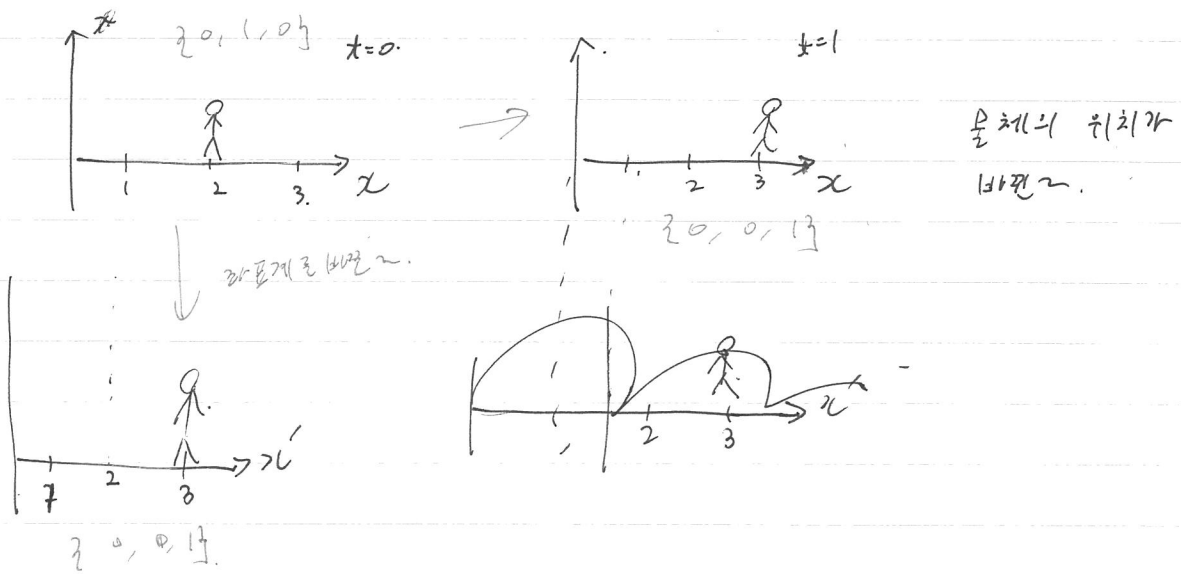 {0, 1, 0} t=0.
1 2 3. x
t=1
1. 2 3 x
{0, 0, 1}
물체의 위치가
바뀐다.
좌표계를 바꾼다.
1 2 3 x'
{0, 0, 1}.
2 3 x'